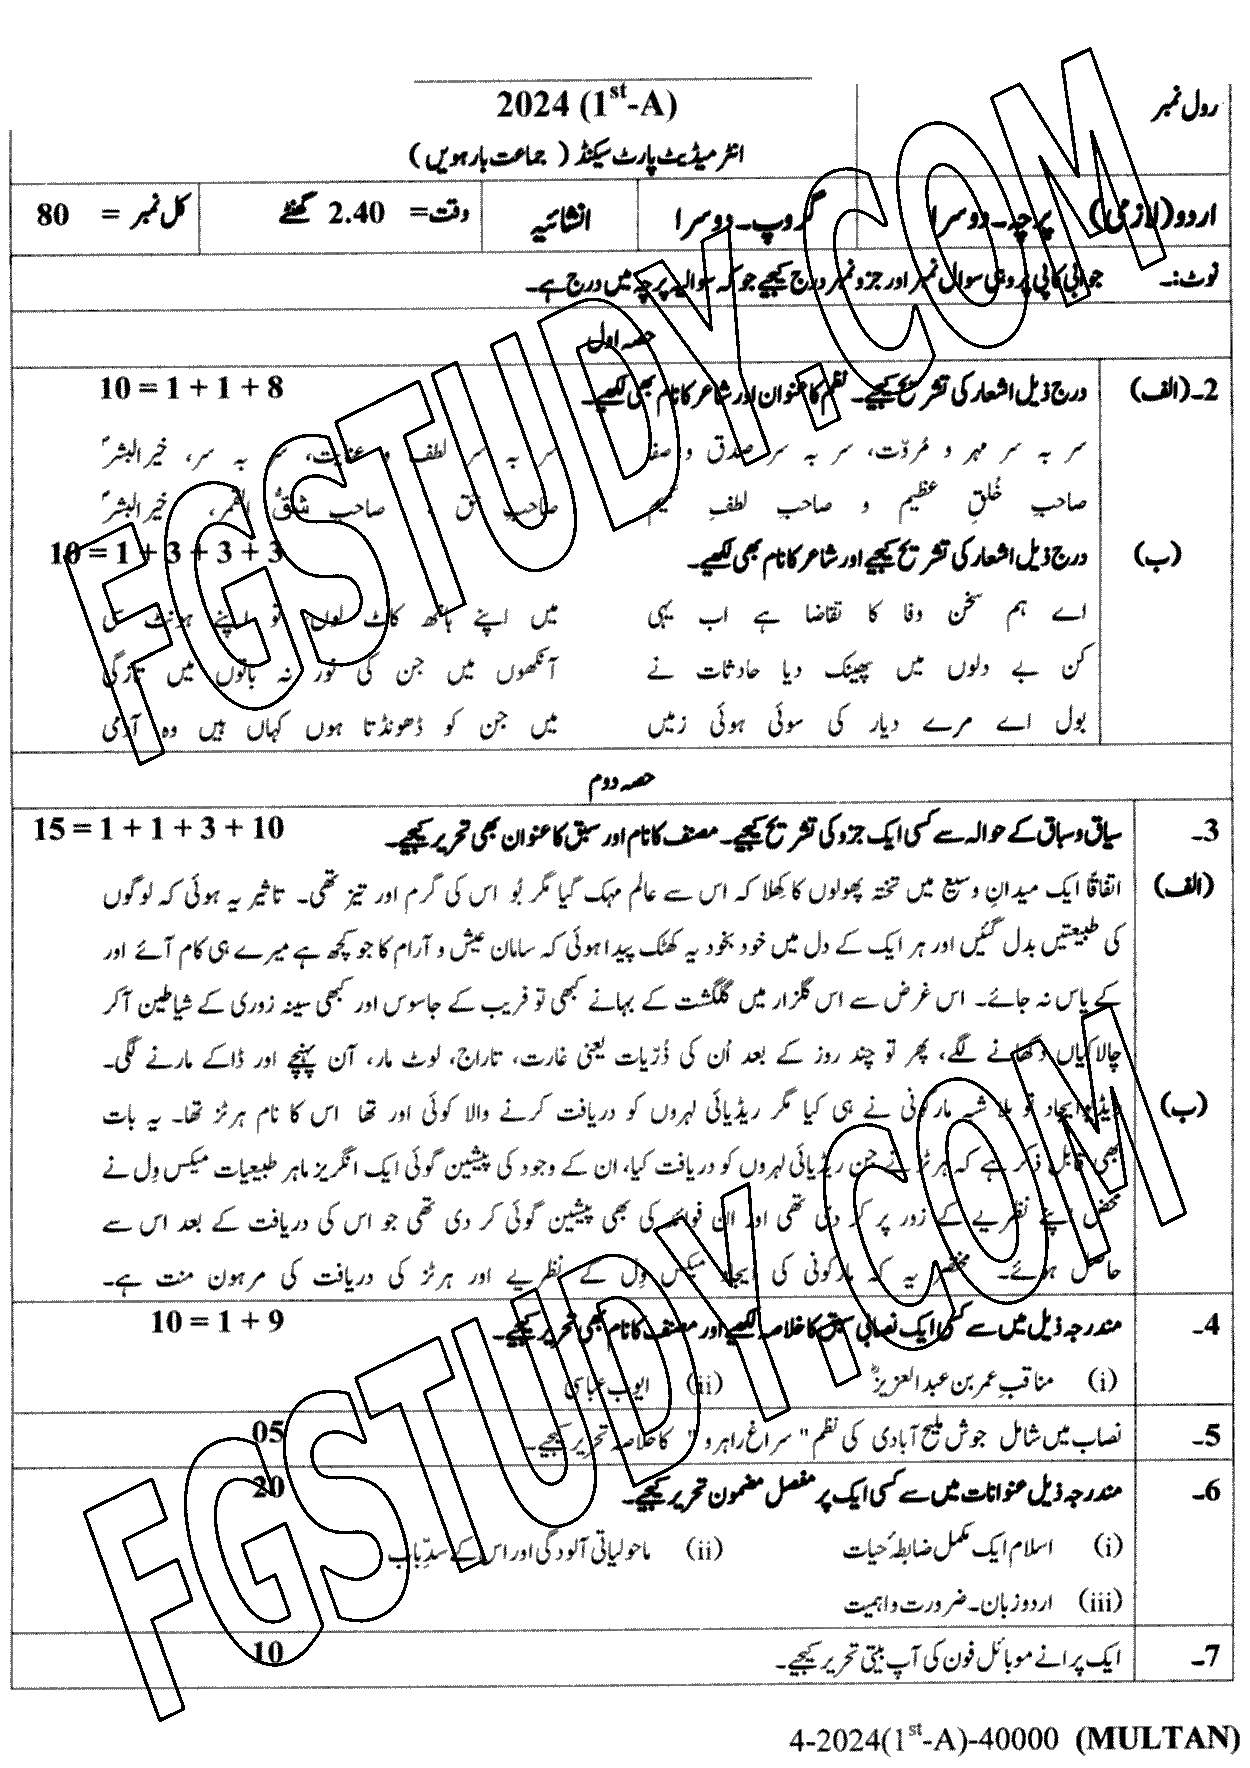 2024 (1st-A)
رول نمبر
انٹرمیڈیٹ پارٹ سیکنڈ ( جماعت بارہویں )
اردو (لازمی) پرچہ۔دوسرا گروپ۔دوسرا انشائیہ وقت= 2.40 گھنٹے کل نمبر = 80
نوٹ:۔ جوابی کاپی پر وہی سوال نمبر اور جزو نمبر درج کیجیے جو کہ سوالیہ پرچہ میں درج ہے۔
حصہ اول
2۔(الف) درج ذیل اشعار کی تشریح کیجیے۔ نظم کا عنوان اور شاعر کا نام بھی لکھیے۔ 10 = 1 + 1 + 8
سر بہ سر مہر و مُروّت، سر بہ سر صدق و صفا سر بہ سر لطف و عنایت، سر بہ سر، خیرالبشرؐ
صاحبِ خُلقِ عظیم و صاحبِ لطفِ عمیم صاحبِ حق، صاحبِ شقُّ القمر، خیرالبشرؐ
(ب) درج ذیل اشعار کی تشریح کیجیے اور شاعر کا نام بھی لکھیے۔ 10 = 1 + 3 + 3 + 3
اے ہم سخن وفا کا تقاضا ہے اب یہی میں اپنے ہاتھ کاٹ لوں تو اپنے ہونٹ سی
کن بے دلوں میں پھینک دیا حادثات نے آنکھوں میں جن کی نور نہ باتوں میں تازگی
بول اے مرے دیار کی سوئی ہوئی زمیں میں جن کو ڈھونڈتا ہوں کہاں ہیں وہ آدمی
حصہ دوم
3۔ سیاق و سباق کے حوالہ سے کسی ایک جزو کی تشریح کیجیے۔ مصنف کا نام اور سبق کا عنوان بھی تحریر کیجیے۔ 15 = 1 + 1 + 3 + 10
(الف) اتفاقاً ایک میدانِ وسیع میں تختہ پھولوں کا کِھلا کہ اس سے عالم مہک گیا مگر بُو اس کی گرم اور تیز تھی۔ تاثیر یہ ہوئی کہ لوگوں
کی طبیعتیں بدل گئیں اور ہر ایک کے دل میں خود بخود یہ کھٹک پیدا ہوئی کہ سامان عیش و آرام کا جو کچھ ہے میرے ہی کام آئے اور
کے پاس نہ جائے۔ اس غرض سے اس گلزار میں گلگشت کے بہانے کبھی تو فریب کے جاسوس اور کبھی سینہ زوری کے شیاطین آکر
چالاکیاں دکھانے لگے، پھر تو چند روز کے بعد اُن کی ذُرّیات یعنی غارت، تاراج، لوٹ مار، آن پہنچے اور ڈاکے مارنے لگی۔
(ب) ریڈیو ایجاد تو بلا شبہ مارکونی نے ہی کیا مگر ریڈیائی لہروں کو دریافت کرنے والا کوئی اور تھا اس کا نام ہرٹز تھا۔ یہ بات
بھی قابلِ ذکر ہے کہ ہرٹز نے جن ریڈیائی لہروں کو دریافت کیا، ان کے وجود کی پیشین گوئی ایک انگریز ماہر طبیعیات میکس وِل نے
محض اپنے نظریے کے زور پر کر دی تھی اور ان فوائد کی بھی پیشین گوئی کر دی تھی جو اس کی دریافت کے بعد اس سے
حاصل ہوئے۔ مختصر یہ کہ مارکونی کی ایجاد میکس وِل کے نظریے اور ہرٹز کی دریافت کی مرہون منت ہے۔
4۔ مندرجہ ذیل میں سے کسی ایک نصابی سبق کا خلاصہ لکھیے اور مصنف کا نام بھی تحریر کیجیے۔ 10 = 1 + 9
(i) مناقبِ عمر بن عبدالعزیزؒ (ii) ایوب عباسی
5۔ نصاب میں شامل جوش ملیح آبادی کی نظم " سراغِ راہرو " کا خلاصہ تحریر کیجیے۔ 05
6۔ مندرجہ ذیل عنوانات میں سے کسی ایک پر مفصل مضمون تحریر کیجیے۔ 20
(i) اسلام ایک مکمل ضابطۂ حیات (ii) ماحولیاتی آلودگی اور اس کے سدِّباب
(iii) اردو زبان۔ ضرورت و اہمیت
7۔ ایک پرانے موبائل فون کی آپ بیتی تحریر کیجیے۔ 10
4-2024(1st-A)-40000 (MULTAN)
FGSTUDY.COM
FGSTUDY.COM